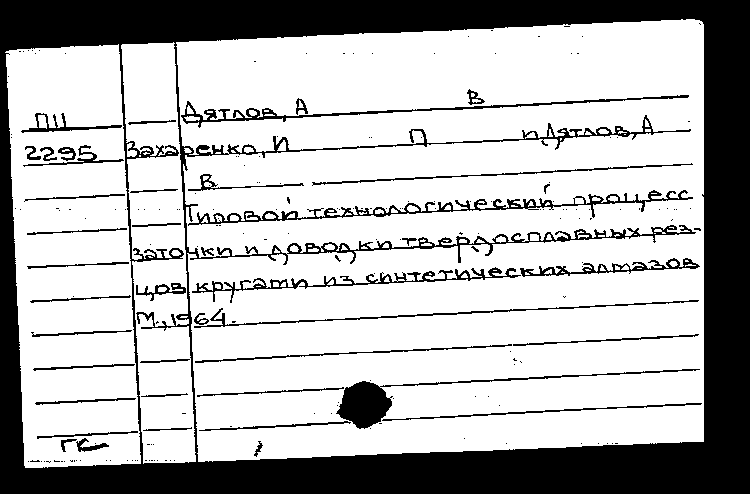 Дятлов, А В
П11
2295 Захаренко, И П и Дятлов, А
В
Типовой технологический процесс
заточки и доводки твердосплавных рез-
цов кругами из синтетических алмазов
М., 1964.
ГК